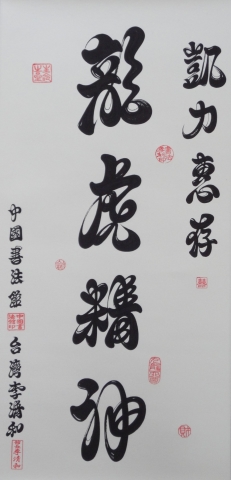 凱力惠存
龍虎精神
中國書法龍
台灣李清和